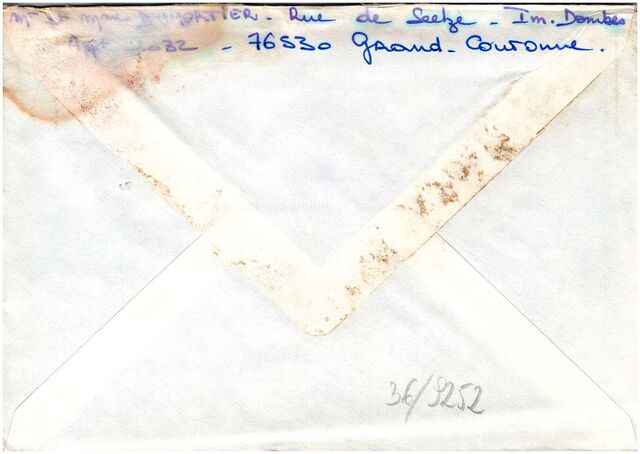 Mr et Mme DUMORTIER - Rue de Seelze - Im. Dombes
Appt 1032 - 76530 Grand-Couronne.
36/9252